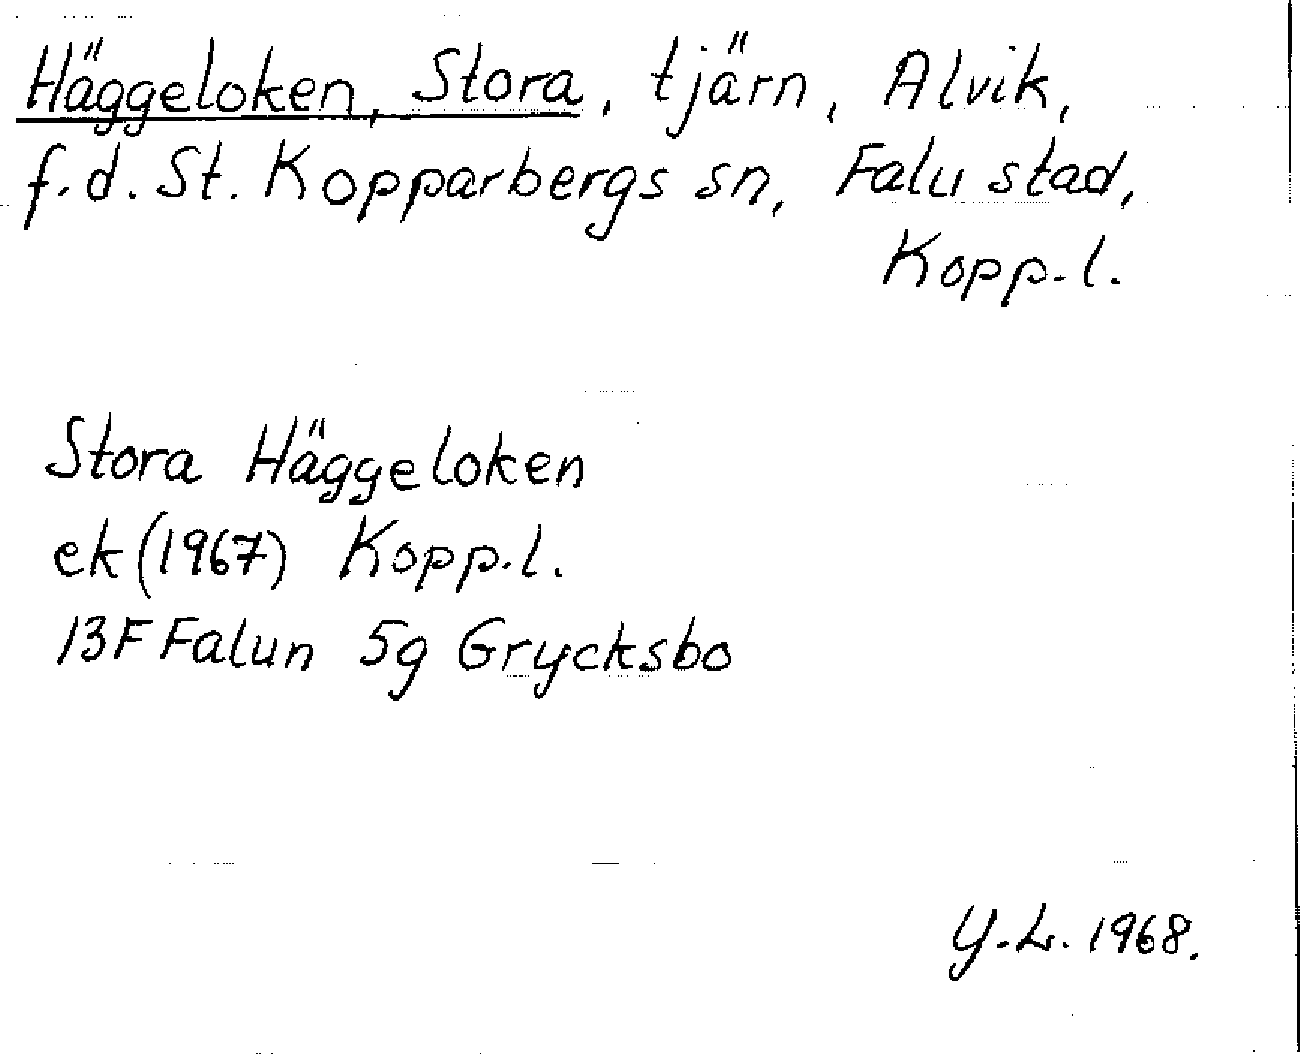 Häggeloken, Stora, tjärn, Alvik,
f.d. St. Kopparbergs sn, Falu stad,
Kopp.l.
Stora Häggeloken
ek (1967) Kopp.l.
13F Falun 5g Grycksbo
Y.L. 1968.